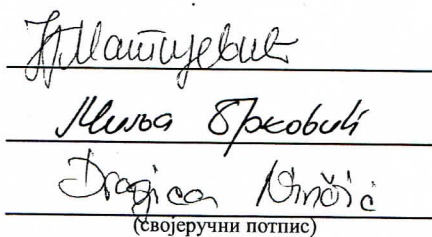 Матијевић
Миља Брковић
Dragica Ninčić
(својеручни потпис)